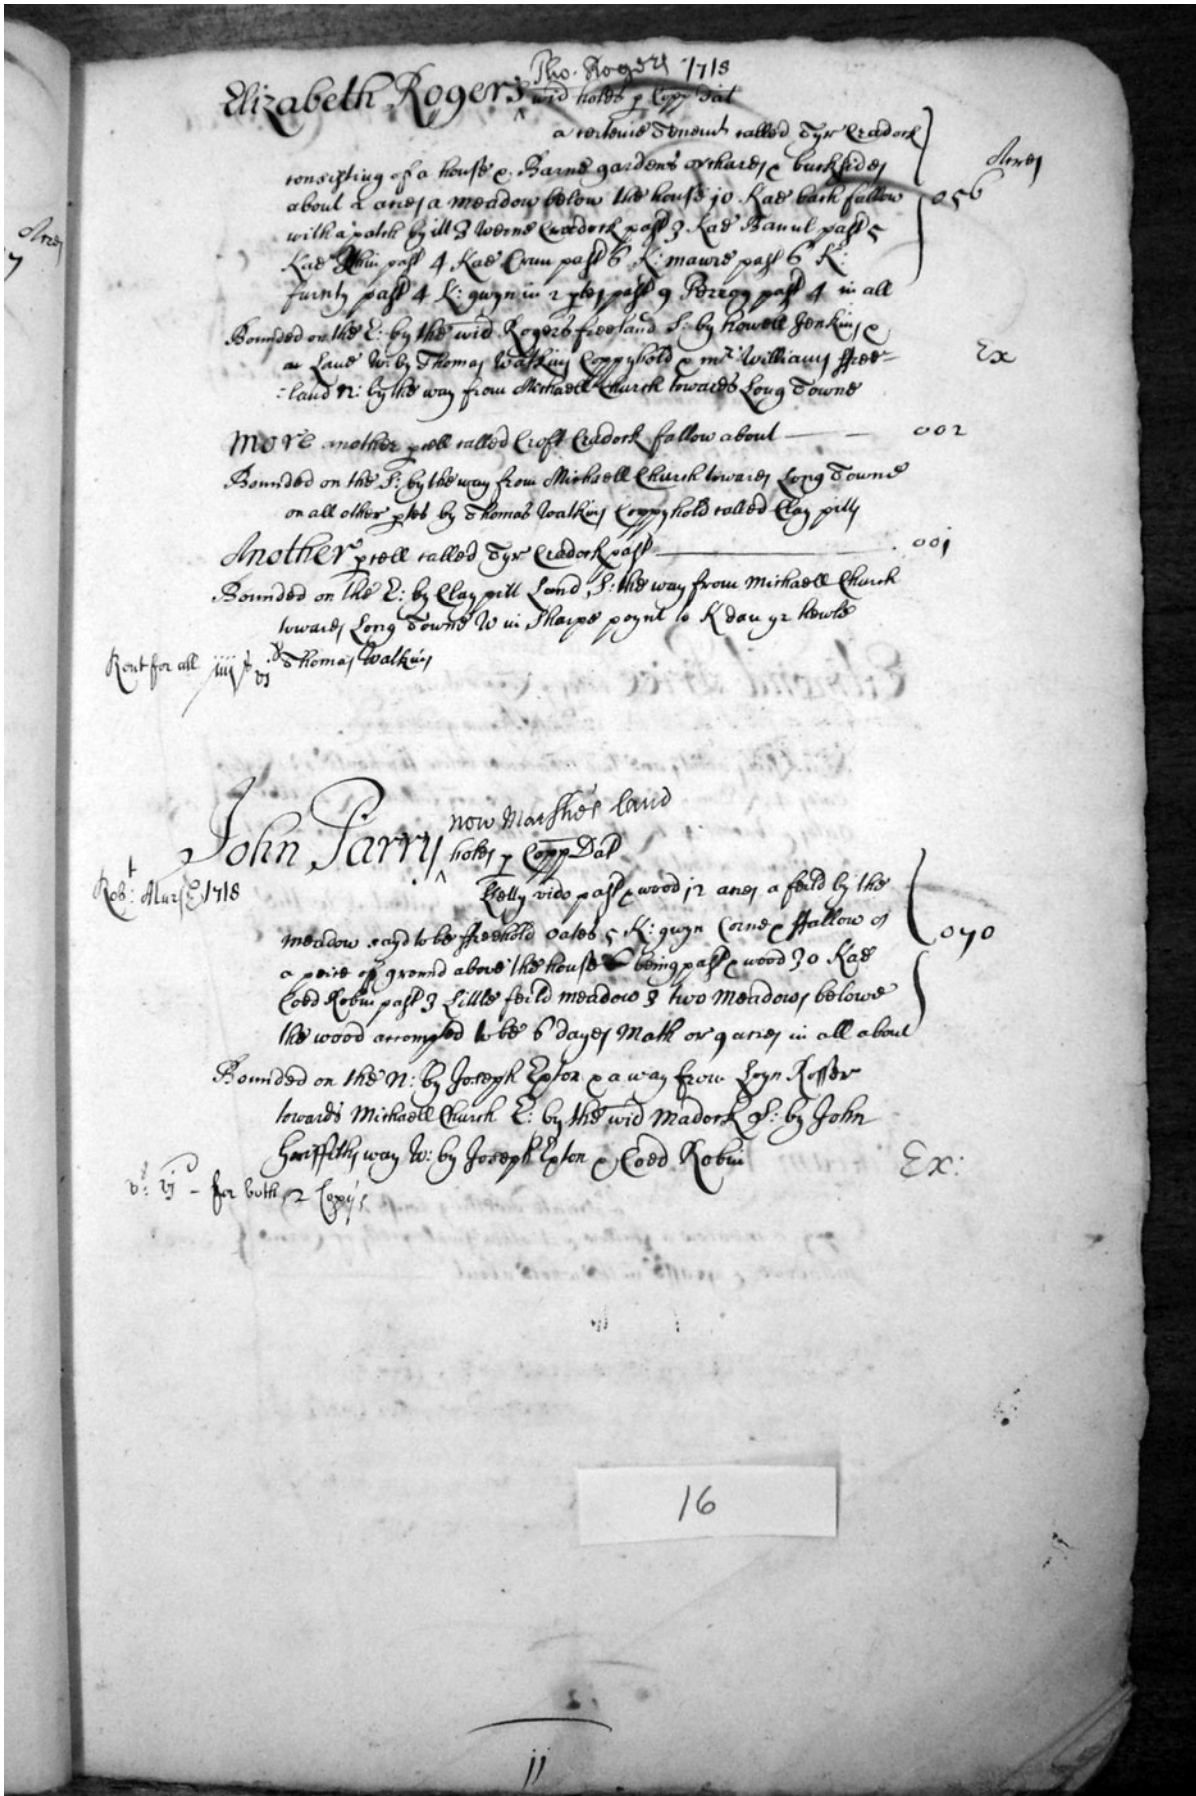 Tho. Rogers 1718
Elizabeth Rogers wid holds p Copp Dat
a certeine Tenemt called Tyr Cradock
Acres
consisting of a house & Barne gardens orchares & backsides
about 2 acres a meadow below the house 10 Kae bach fallow
056
with a patch by itt 3 Werne Cradock past 3 Kae Banul past 5
Kae past 4 Kae Crun past 6 K: mawre past 6 K:
furnty past 4 K: gwyn in 2 ptes past 9 Perrog past 4 in all
Bounded on the E: by the wid Rogers freeland S: by Howell Jenkins &
a Lane W: by Thomas Watkins Coppyhold & mr Williams ffree-
Ex
:land N: by the way from Michaell Church towards Long Towne
More another pcell called Croft Cradock fallow about — — 002
Bounded on the S: by the way from Michaell Church towares Long Towne
on all other ptes by Thomas Watkins Coppyhold called Clay pitts
Another pcell called Tyr Cradock past — 001
Bounded on the E: by Clay pitt Land S: the way from Michaell Church
towares Long Towne W in Sharpe poynt to K dan yr hewle
Thomas Watkins
Rent for all iiijs vjd
now Marshes land
John Parry holds p Copp Dat
Robt: Marsh 1718
Kelly vido past & wood 12 acres a feild by the
meadow sayd to be ffreehold oates 5 K: gwyn Corne & ffallow 01
070
a peice of ground above the house being past & wood 30 Kae
Coed Robin past 3 Little feild meadow 3 two meadows belowe
the wood accompted to be 6 dayes Math or 9 acres in all about
Bounded on the N: by Joseph Exton & a way from Loyn Rosser
towards Michaell Church E: by the wid Madock S: by John
Griffiths way W: by Joseph Exton & Coed Robin
Ex:
vs: vjd - for both 2 Copys
16
11